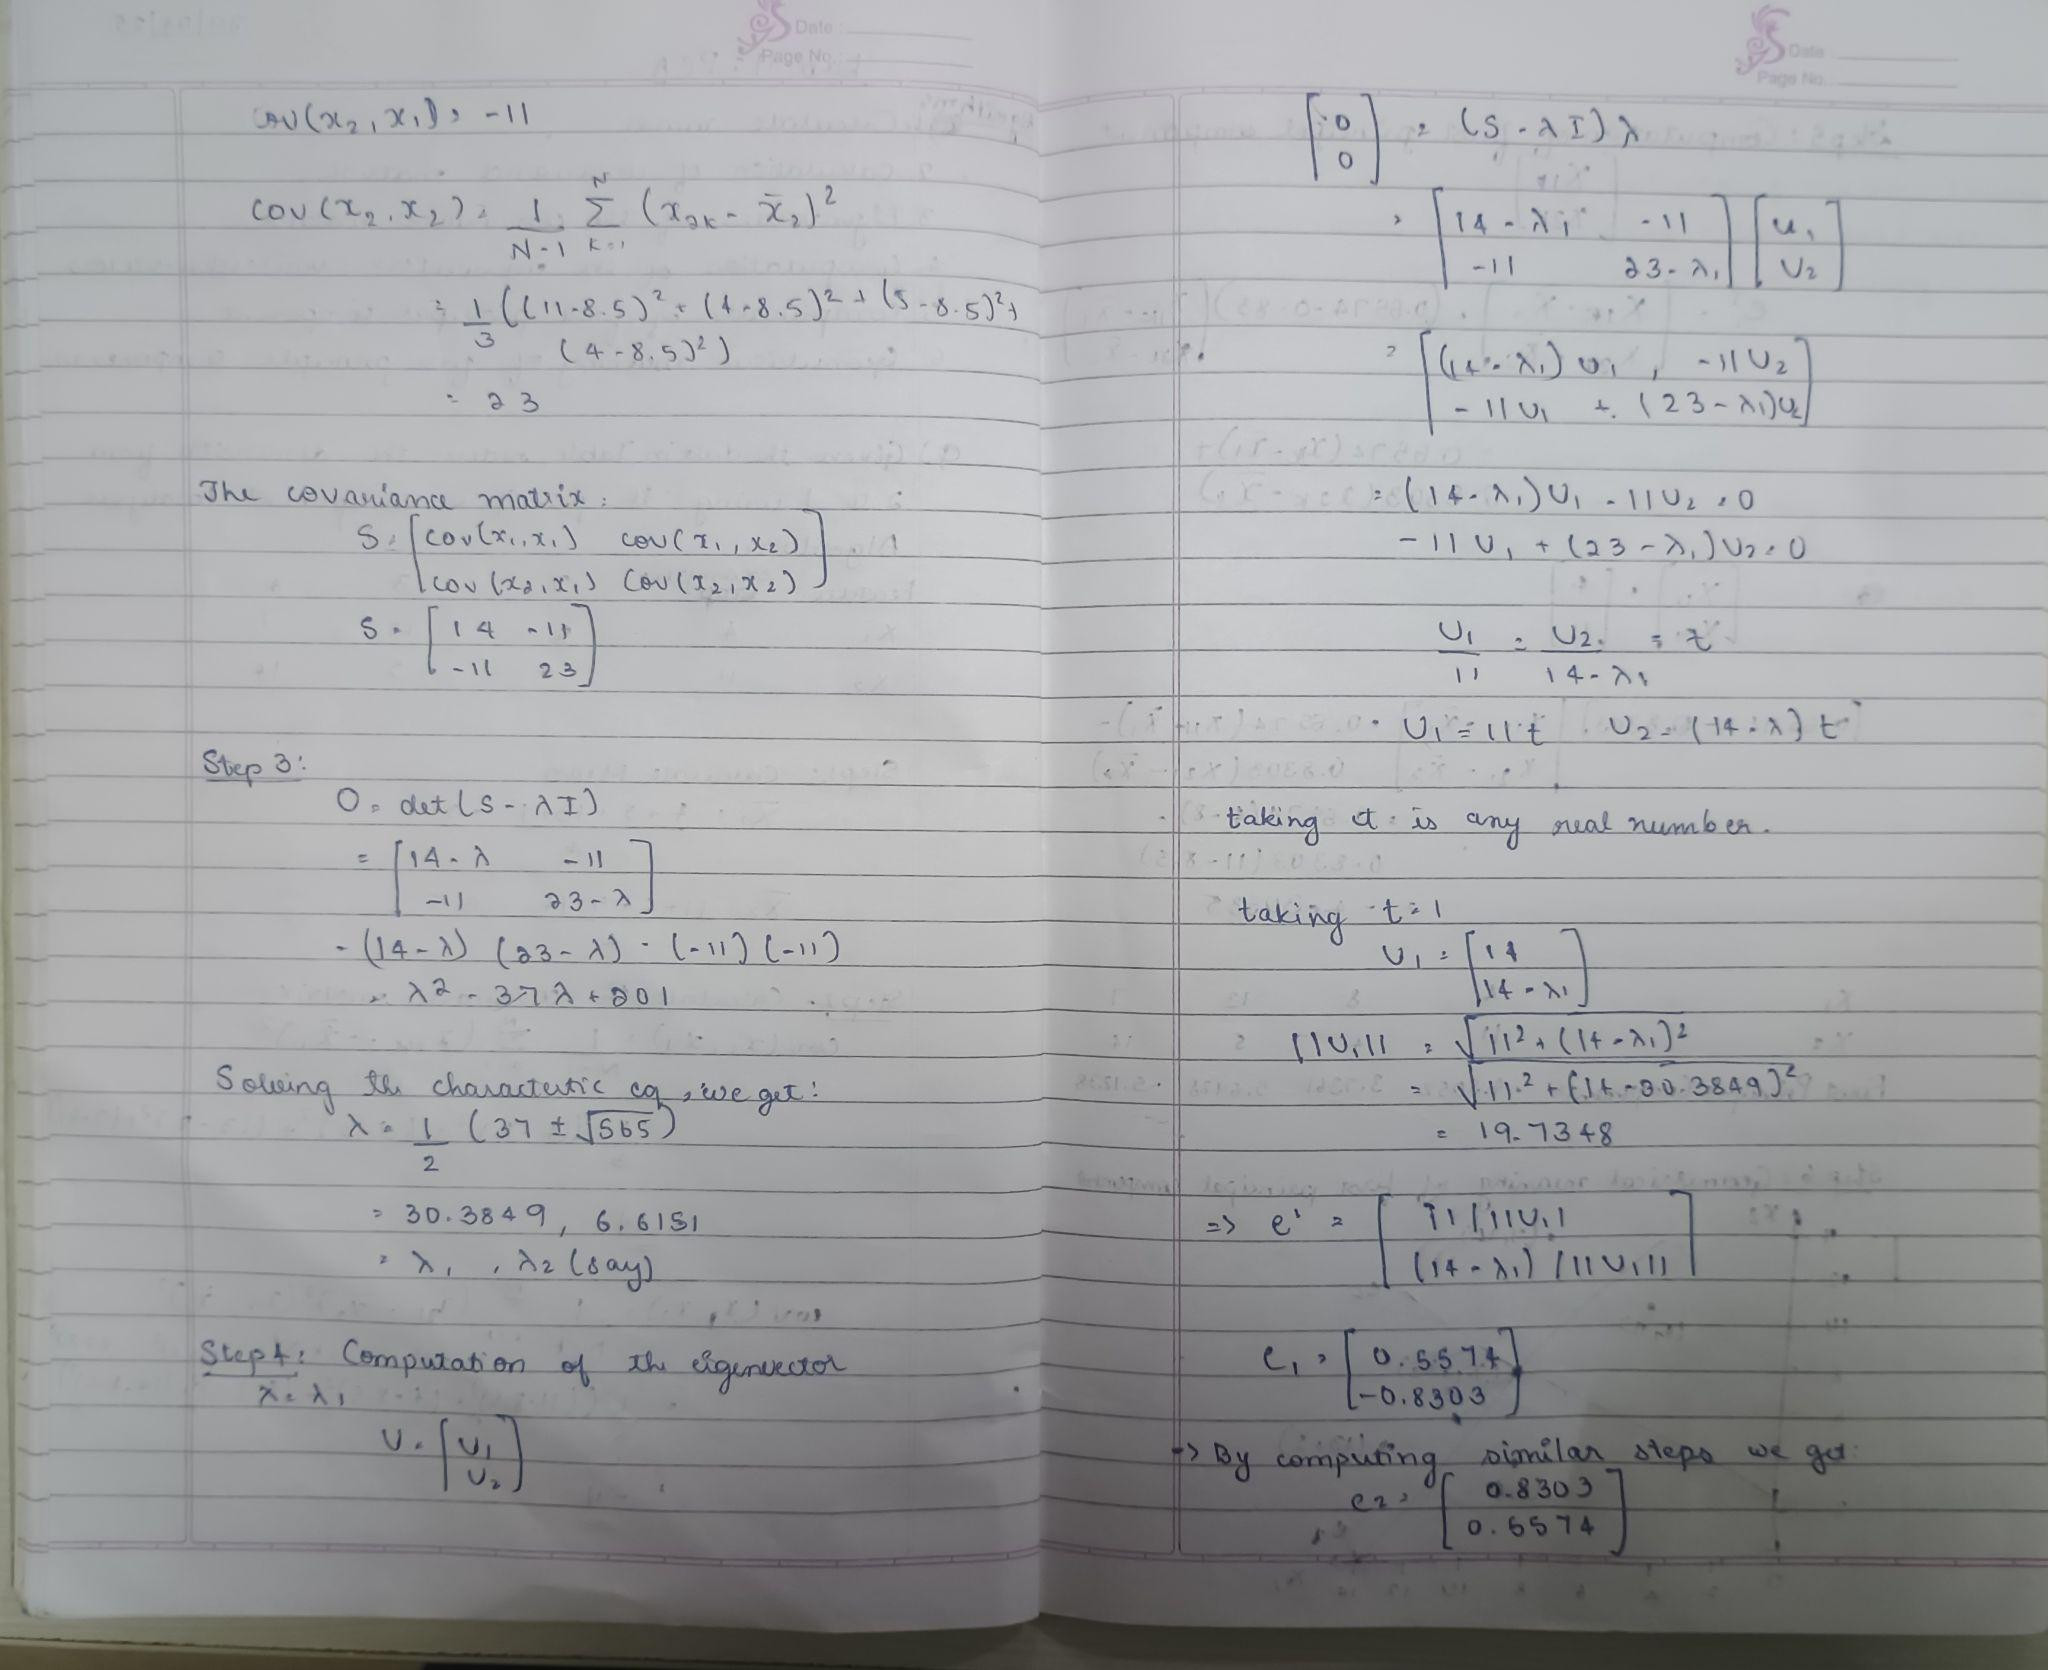 Date :
Page No.:
cov(x₂, x₁) = -11
cov(x₂, x₂) = 1/(N-1) Σ_{k=1}^{N} (x₂ₖ - x̄₂)²
= 1/3 ((11-8.5)² + (4-8.5)² + (5-8.5)² +
(4-8.5)²)
= 23
The covariance matrix:
S = [cov(x₁,x₁) cov(x₁,x₂)]
[cov(x₂,x₁) cov(x₂,x₂)]
S = [14 -11]
[-11 23]
Step 3:
0 = det(S - λI)
= [14-λ -11]
[-11 23-λ]
= (14-λ) (23-λ) - (-11)(-11)
= λ2 - 37λ + 201
Solving the characteristic eq, we get:
λ = 1/2 (37 ± √565)
= 30.3849, 6.6151
= λ₁, λ₂ (say)
Step 4: Computation of the eigenvector
λ = λ₁
U = [U₁]
[U₂]
Date
Page No.
[0] = (S - λI) λ
[0]
= [14-λ₁ -11] [u₁]
[-11 23-λ₁] [U₂]
= [(14-λ₁)U₁, -11U₂]
[-11U₁ + (23-λ₁)U₂]
= (14-λ₁)U₁ - 11U₂ = 0
-11U₁ + (23-λ₁)U₂ = 0
U₁/11 = U₂/(14-λ₁) = t
U₁ = 11t U₂ = (14-λ)t
taking t is any real number.
taking t = 1
U₁ = [14]
[14-λ₁]
||U₁|| = √11² + (14-λ₁)²
= √11² + (14-30.3849)²
= 19.7348
=> e' = [11/||U₁|]
[(14-λ₁)/||U₁||]
e₁ = [0.5574]
[-0.8303]
-> By computing similar steps we get:
e2 = [0.8303]
[0.5574]